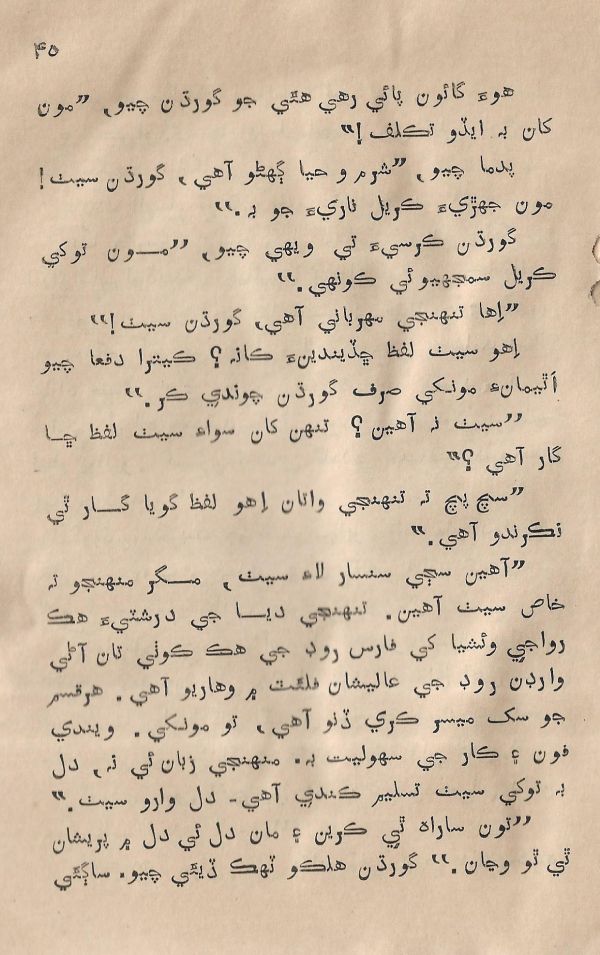 ۴۵
هوءَ گائون پائي رهي هئي جو گورڌن چيو, ”مون
کان به ايڏو تڪلف !“
پدما چيو, ”شرم و حيا گهڻو آهي, گورڌن سيٺ!
مون جهڙيءَ ڪريل ناريءَ جو به.“
گورڌن ڪرسيءَ تي ويهي چيو, ”مـــون توکي
ڪريل سمجهيو ئي ڪونهي.“
”اِها تنهنجي مهرباني آهي, گورڌن سيٺ!“
اِهو سيٺ لفظ ڇڏيندينءَ ڪانه؟ ڪيترا دفعا چيو
اَٿيمانءِ مونکي صرف گورڌن چوندي ڪر.“
”سيٺ نه آهين؟ تنهن کان سواءِ سيٺ لفظ ڇـا
گار آهي ؟“
”سچ پچ ته تنهنجي واتان اِهو لفظ گويا گـــار ٿي
نڪرندو آهي.“
”آهين سڄي سنسار لاءِ سيٺ, مـــگر منهنجو ته
خاص سيٺ آهين. تنهنجي ديـــا جي درشٽيءَ هڪ
رواجي وئشيا کي فارس روڊ جي هڪ ڪوٺي تان آڻي
وارڊن روڊ جي عاليشان فلئٽ ۾ وهاريو آهي. هرقسم
جو سک ميسر ڪري ڏنو آهي, تو مونکي. ويندي
فون ۽ ڪار جي سهوليت به. منهنجي زبان ئي نه, دل
به توکي سيٺ تسليم ڪندي آهي- دل وارو سيٺ.“
”تون ساراهه ٿي ڪرين ۽ مان دل ئي دل ۾ پريشان
ٿي ٿو وڃان.“ گورڌن هلڪو ٽهڪ ڏيئي چيو. ساڳئي